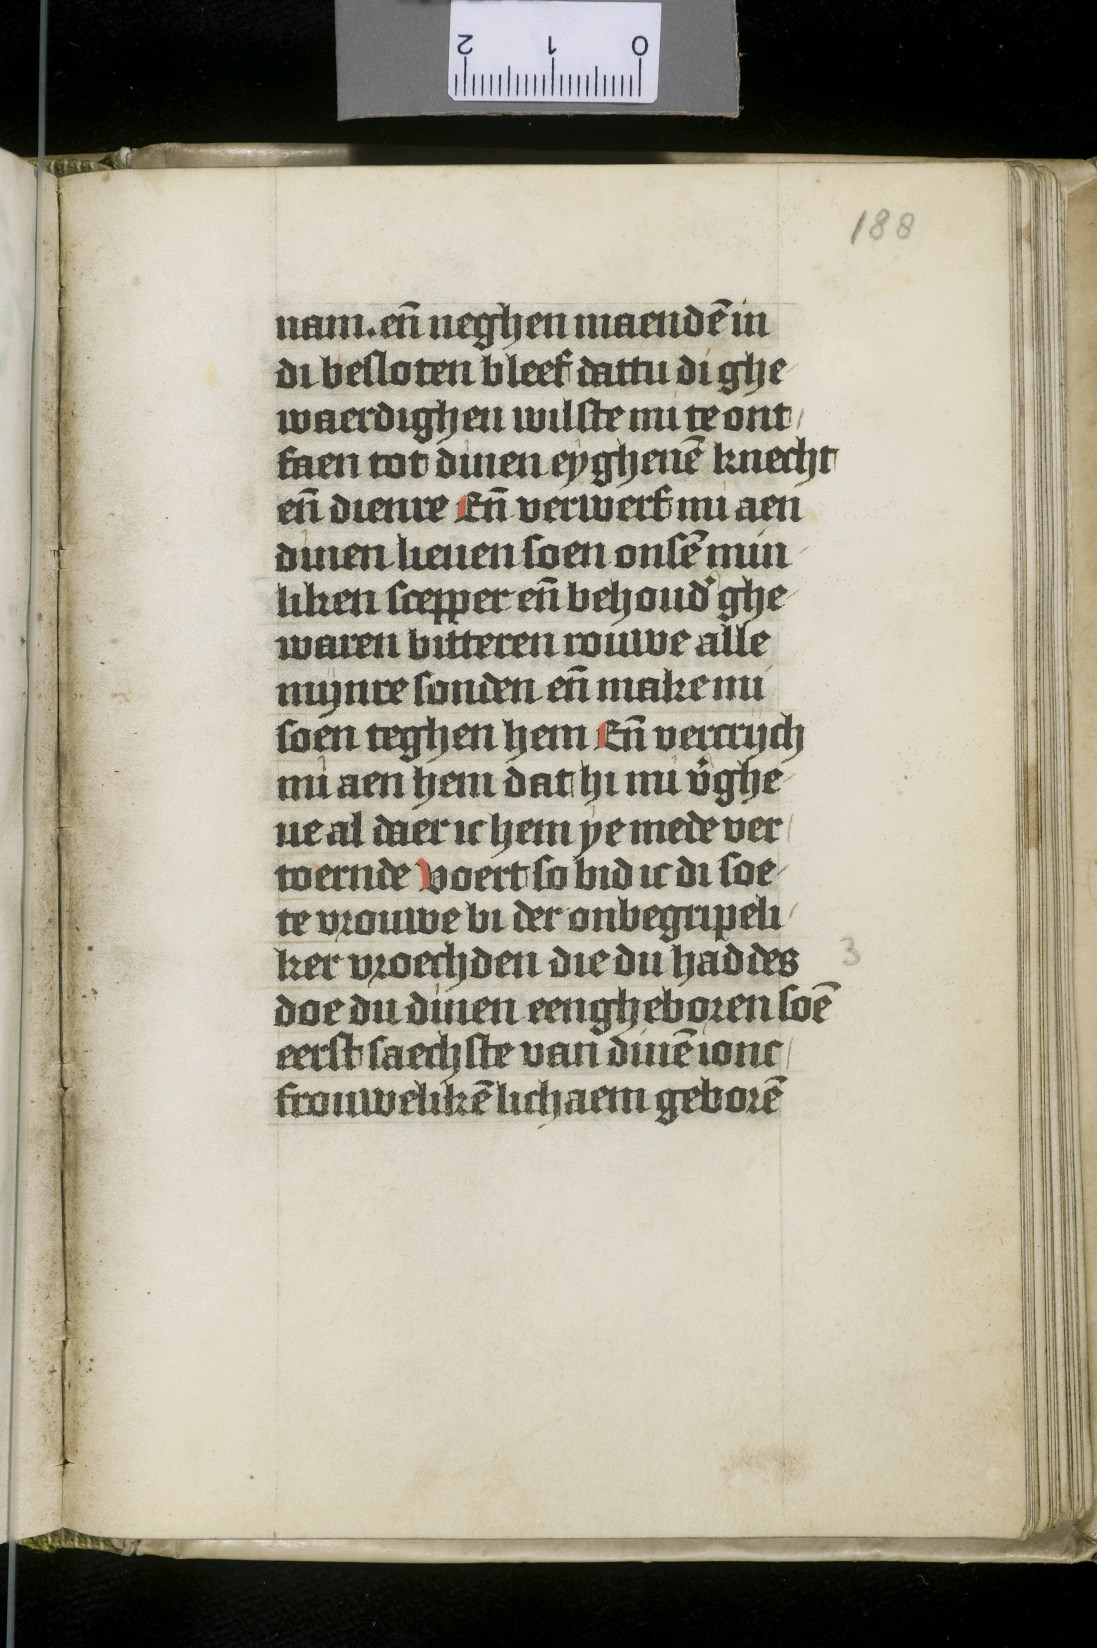 188
nam. en̄ neghen maendē in
di besloten bleef dattu di ghe
waerdighen wilste mi te ont
faen tot dinen eyghenē knecht
en̄ dienre En̄ verwerf mi aen
dinen lieuen soen onsē min
liken scepper en̄ behoud' ghe
waren bitteren rouwe alle
mijnre sonden en̄ make mi
soen teghen hem En̄ vercrijch
mi aen hem dat hi mi v'ghe
ue al daer ic hem ye mede ver
toernde Voert so bid ic di soe
te vrouwe bi der onbegripeli
ker vroechden die du haddes
3
doe du dinen eengheboren soē
eerst saechste van dinē ionc
frouwelikē lichaem geborē
2 1 0